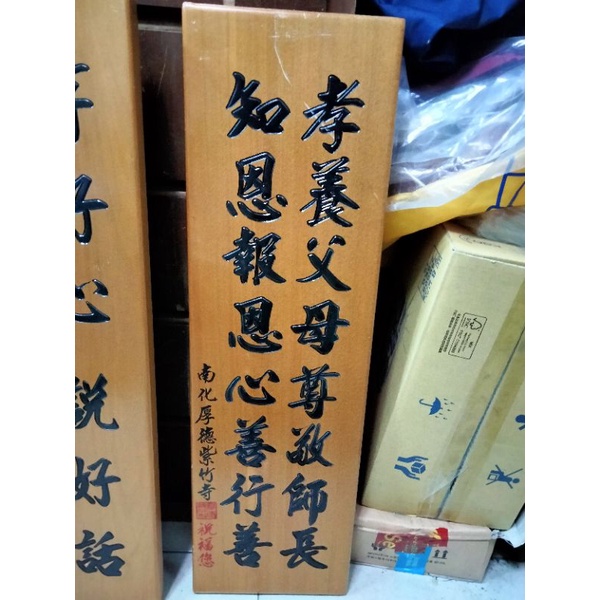 孝養父母尊敬師長
知恩報恩心善行善
南化厚德紫竹寺
祝福您
好心 說好話